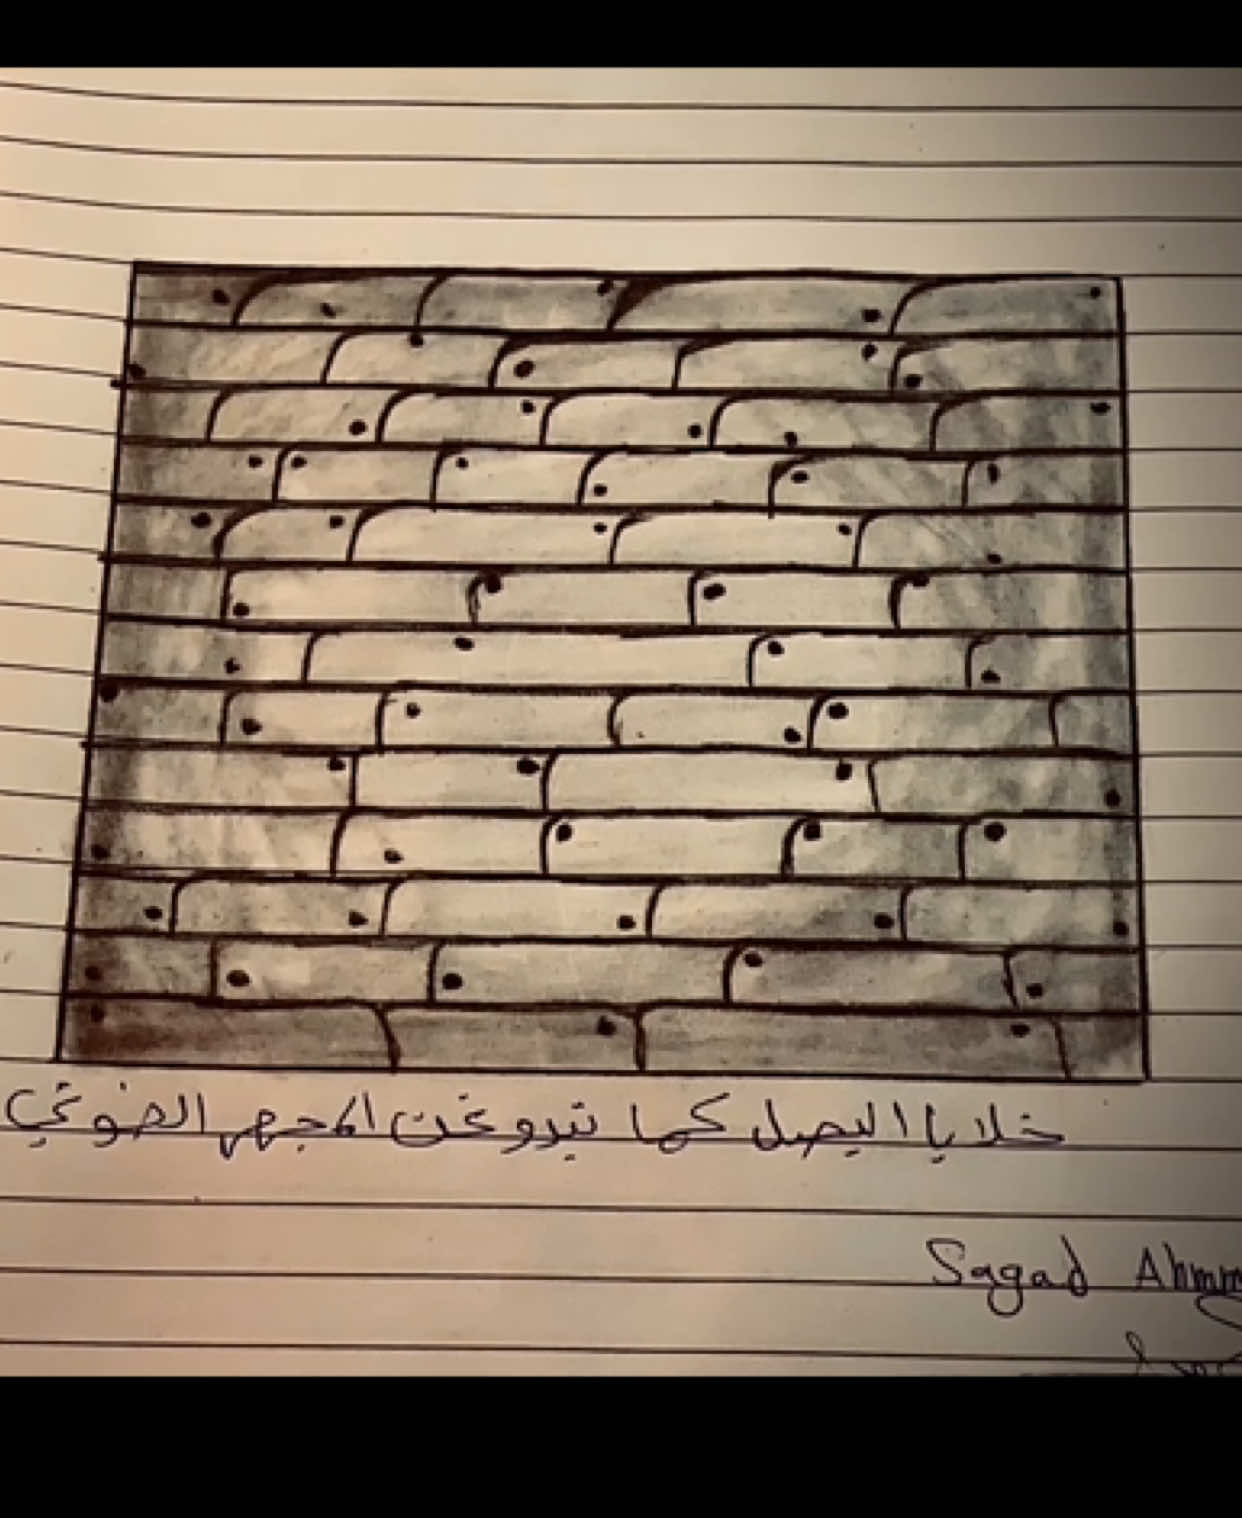 خلايا البصل كما تبدو عن المجهر الضوئي
Sagad Ahmm